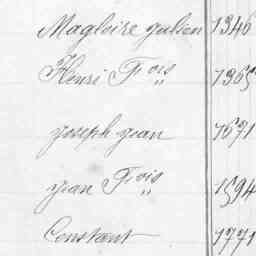 Magloire Julien 1346
Henri Fois 1365
Joseph Jean 1671
Jean Fois 1594
Constant 1771